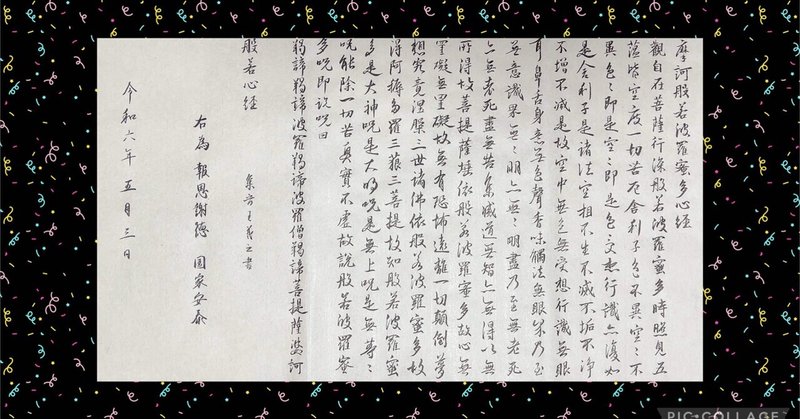 摩訶般若波羅蜜多心經
觀自在菩薩行深般若波羅蜜多時照見五
蘊皆空度一切苦厄舍利子色不異空々不
異色々即是空々即是色受想行識亦復如
是舍利子是諸法空相不生不滅不垢不淨
不增不減是故空中無色無受想行識無眼
耳鼻舌身意無色聲香味觸法無眼界乃至
無意識界無々明亦無々明盡乃至無老死
亦無老死盡無苦集滅道無智亦無得以無
所得故菩提薩埵依般若波羅蜜多故心無
罣礙無罣礙故無有恐怖遠離一切顛倒夢
想究竟涅槃三世諸佛依般若波羅蜜多故
得阿耨多羅三藐三菩提故知般若波羅蜜
多是大神呪是大明呪是無上呪是無等々
呪能除一切苦真實不虚故説般若波羅蜜
多呪即説呪曰
羯諦羯諦波羅羯諦波羅僧羯諦菩提薩婆訶
般若心經
集晋王羲之書
右為報恩謝徳 国家安泰
令和六年五月三日
PIC•COLLAGE